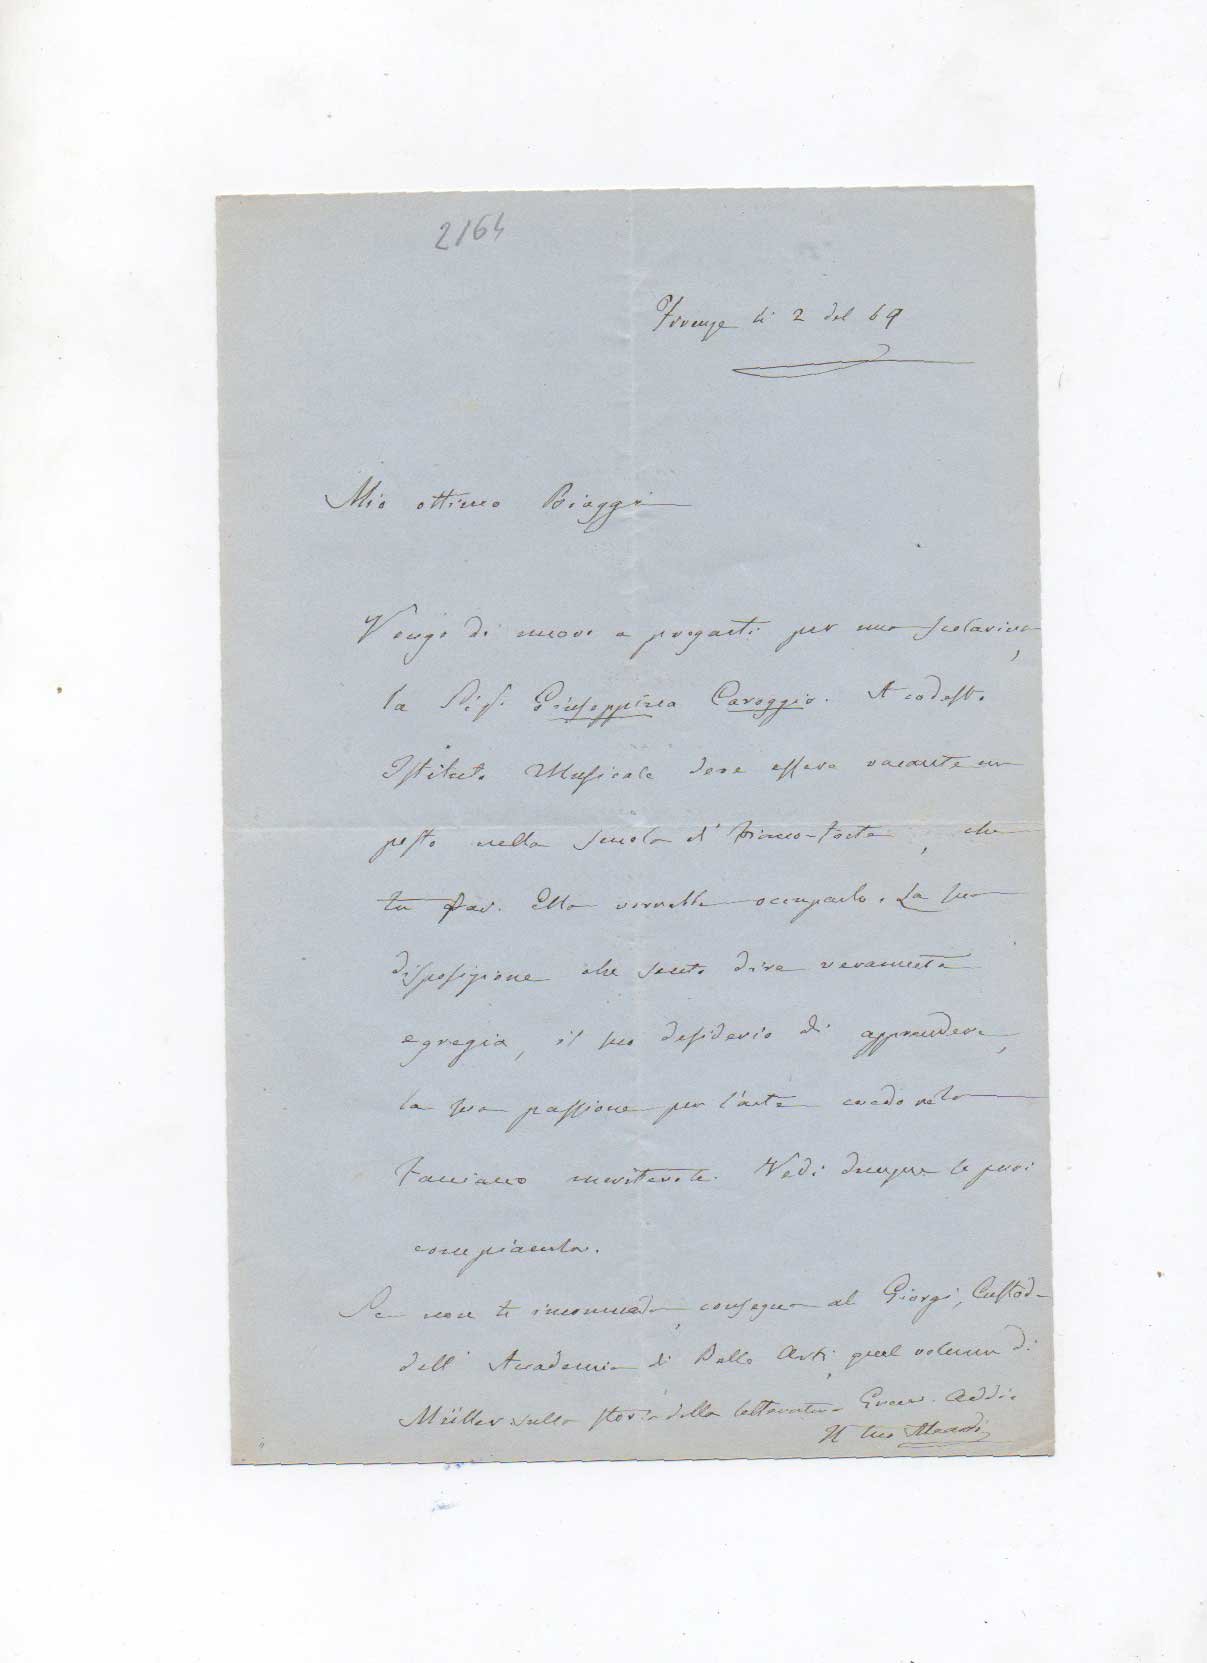 2164
Firenze li 2 del 69
Mio ottimo Biaggi
Vengo di nuovo a pregarti per una scolarina,
la Sig. Giuseppina Caroggio. A codesto
Istituto Musicale deve essere vacante un
posto nella scuola di piano-forte, che
Ella vorrebbe occuparlo. La sua
disposizione che sento dire veramente
egregia, il suo desiderio di apprendere,
la sua passione per l'arte credo ne la
facciano meritevole. Vedi dunque se puoi
compiacerla.
Se non ti incomoda, consegna al Giorgi, Custode
dell' Accademia di Belle Arti, quel volume di
Müller sulla storia della letteratura Greca. Addio
Il tuo